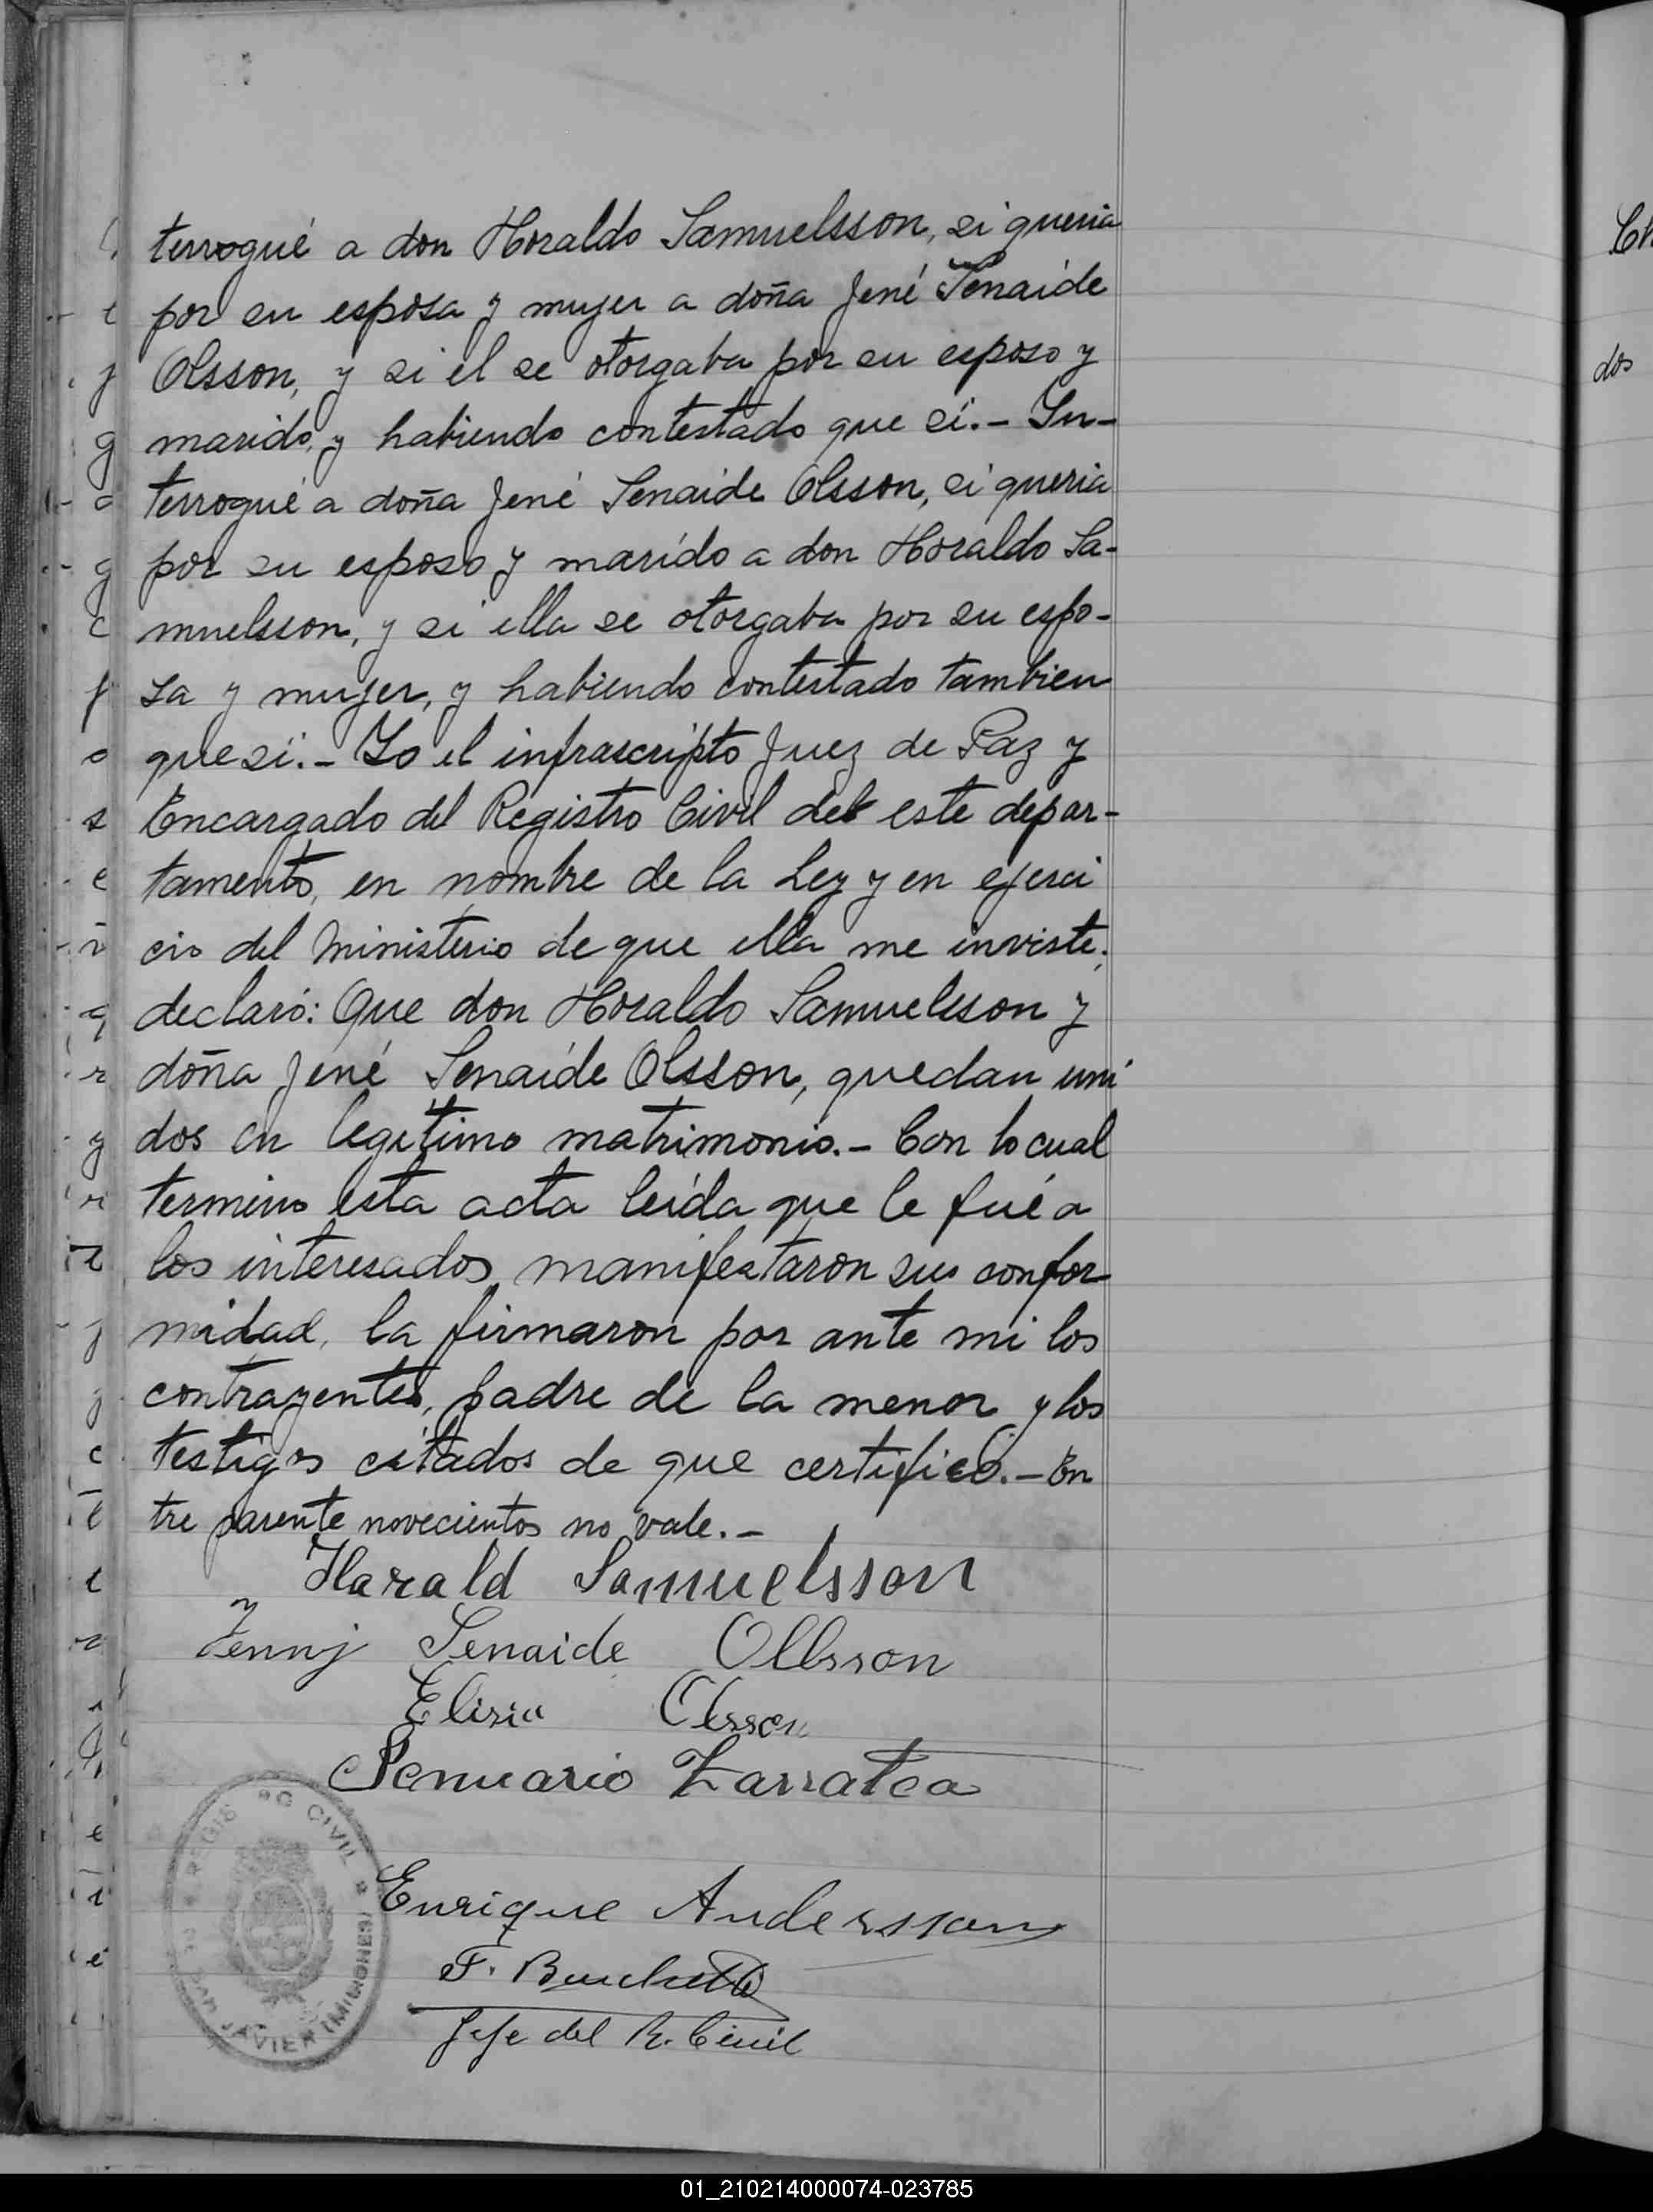 terrogué a don Horaldo Samuelsson, si queria
por su esposa y mujer a doña Jené Senaide
Olsson, y si el se otorgaba por su esposo y
marido, y habiendo contestado que sí.- In-
terrogué a doña Jené Senaide Olsson, si queria
por su esposo y marido a don Horaldo Sa-
muelsson, y si ella se otorgaba por su espo-
sa y mujer, y habiendo contestado tambien
que sí.- Yo el infrascripto Juez de Paz y
Encargado del Registro Civil del este depar-
tamento, en nombre de la Ley y en ejerci
cio del Ministerio de que ella me inviste,
declaró: Que don Horaldo Samuelsson y
doña Jené Senaide Olsson, quedan uni
dos en legitimo matrimonio.- Con lo cual
termino esta acta leída que le fué a
los interesados, manifestaron sus confor
midad, la firmaron por ante mi los
contrayentes, padre de la menor y los
testigos citados de que certifico.- En
tre parente novecientos no vale.-
Harald Samuelsson
Jennj Senaide Ollsson
Elisia Olsson
Jenuario Zarratea
Enrique Andersson
Jefe del R. Civil
REGIS RO CIVIL
SAN JAVIER (MISIONES)
dos
01_210214000074-023785